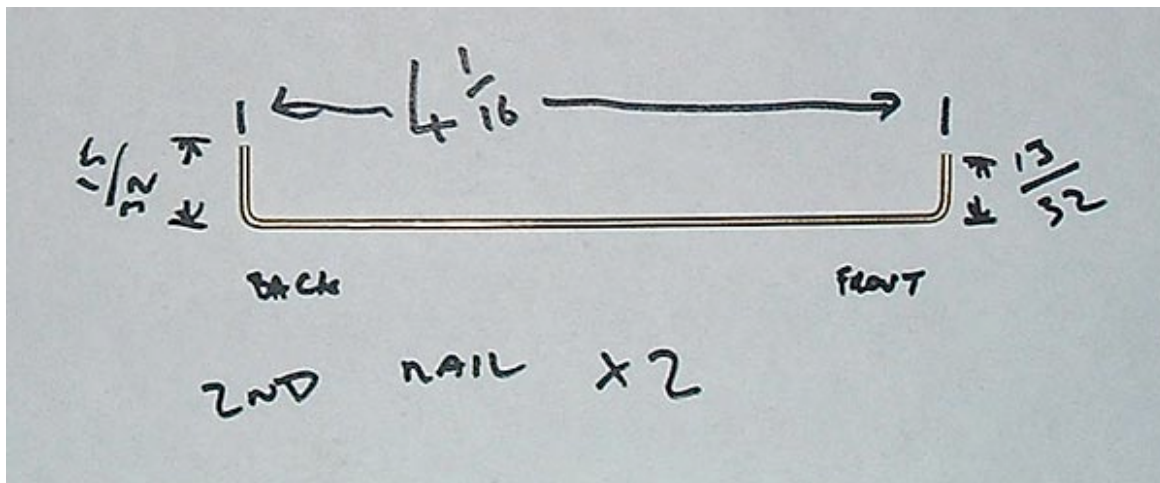 4 1/16
15/32
13/32
BACK
FRONT
2ND RAIL X2